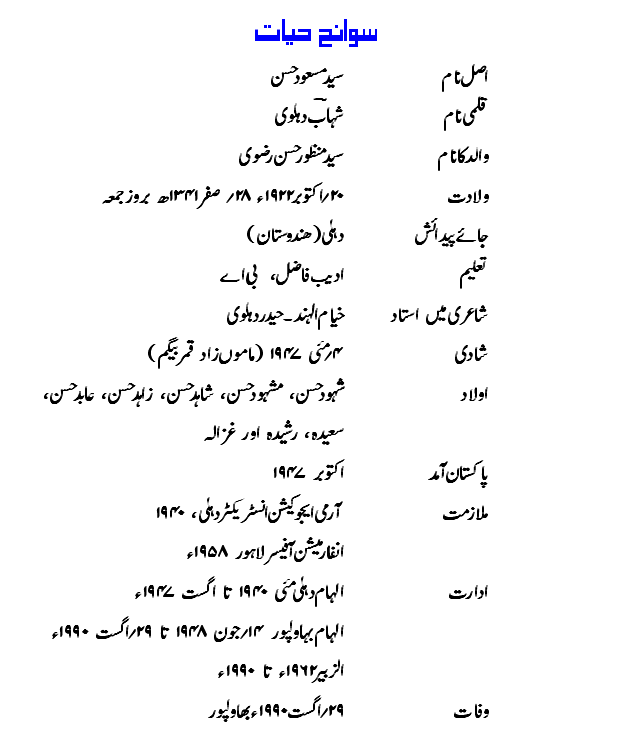 سوانح حیات
اصل نام سید مسعود حسن
قلمی نام شہابؔ دہلوی
والد کا نام سید منظور حسن رضوی
ولادت ۲۰؍اکتوبر۱۹۲۲ء ۲۸؍ صفر ۱۳۴۱ھ بروز جمعہ
جائے پیدائش دہلی(ھندوستان)
تعلیم ادیب فاضل، بی اے
شاعری میں استاد خیام الہند۔حیدر دہلوی
شادی ۴؍مئی ۱۹۴۷ (ماموں زاد قمر بیگم)
اولاد شہود حسن، مشہود حسن، شاہد حسن، زاہد حسن، عابد حسن،
سعیدہ، رشیدہ اور غزالہ
پاکستان آمد اکتوبر ۱۹۴۷
ملازمت آرمی ایجوکیشن انسٹریکٹر دہلی، ۱۹۴۰
انفارمیشن آفیسر لاہور ۱۹۵۸ء
ادارت الہام دہلی مئی ۱۹۴۰ تا اگست ۱۹۴۷ء
الہام بہاولپور ۱۴؍جون ۱۹۴۸ تا ۲۹؍اگست ۱۹۹۰ء
الزبیر۱۹۶۲ء تا ۱۹۹۰ء
وفات ۲۹؍اگست۱۹۹۰ء بھاولپور